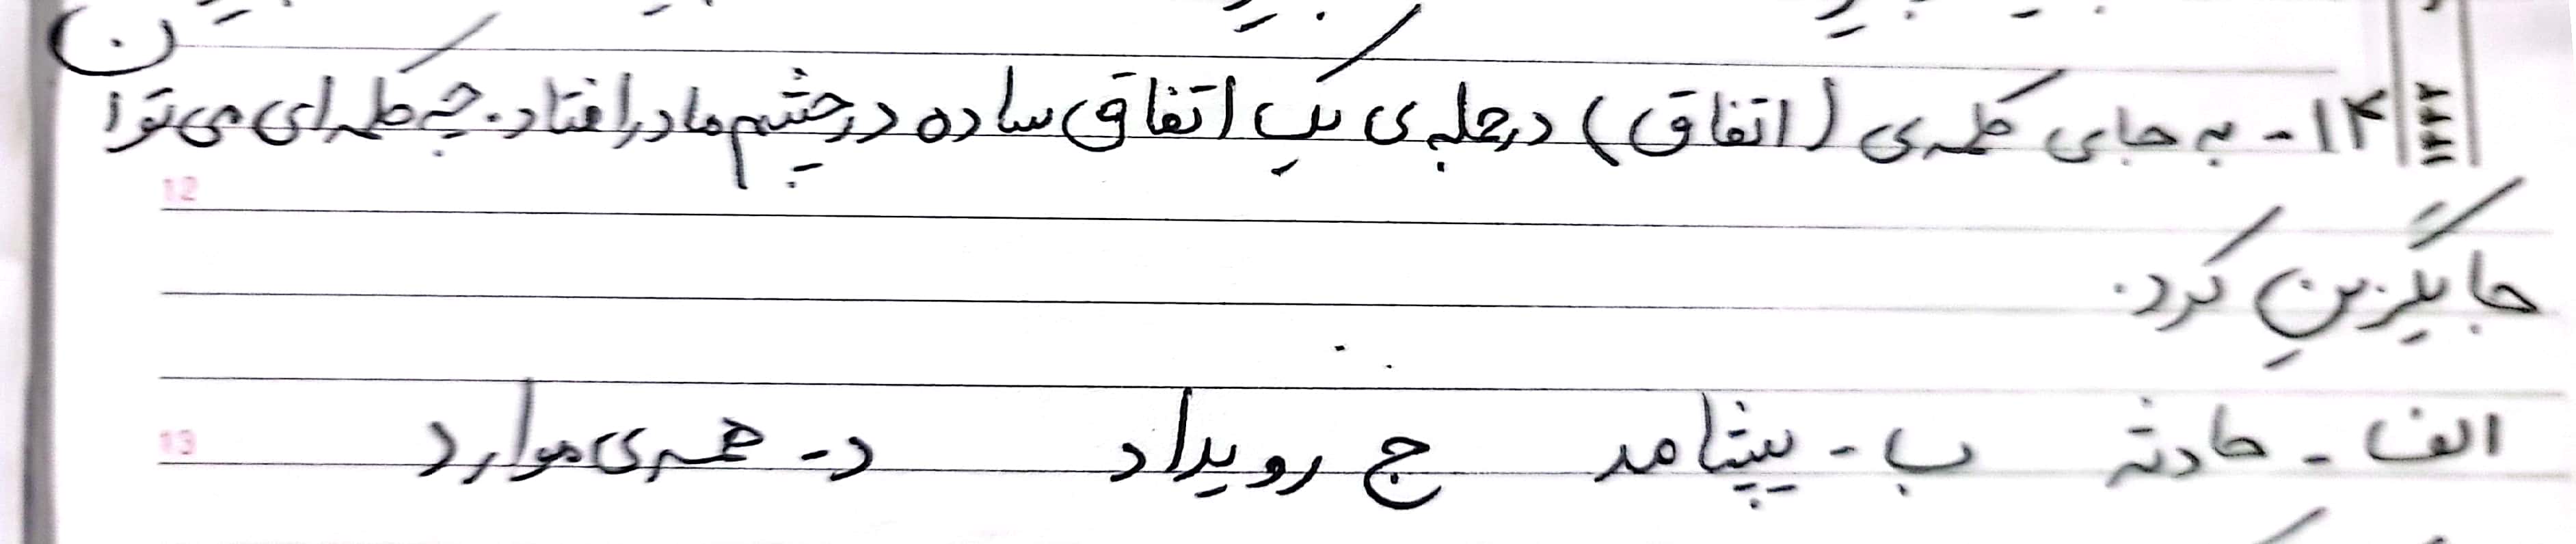 ۱۴- به جای کلمه ی (اتفاق) در جمله ی یک اتفاق ساده در چشم مادر افتاد. چه کلمه ای می توان
12
جایگزین کرد.
الف - حادثه ب - پیشامد ج رویداد د- همه ی موارد
13